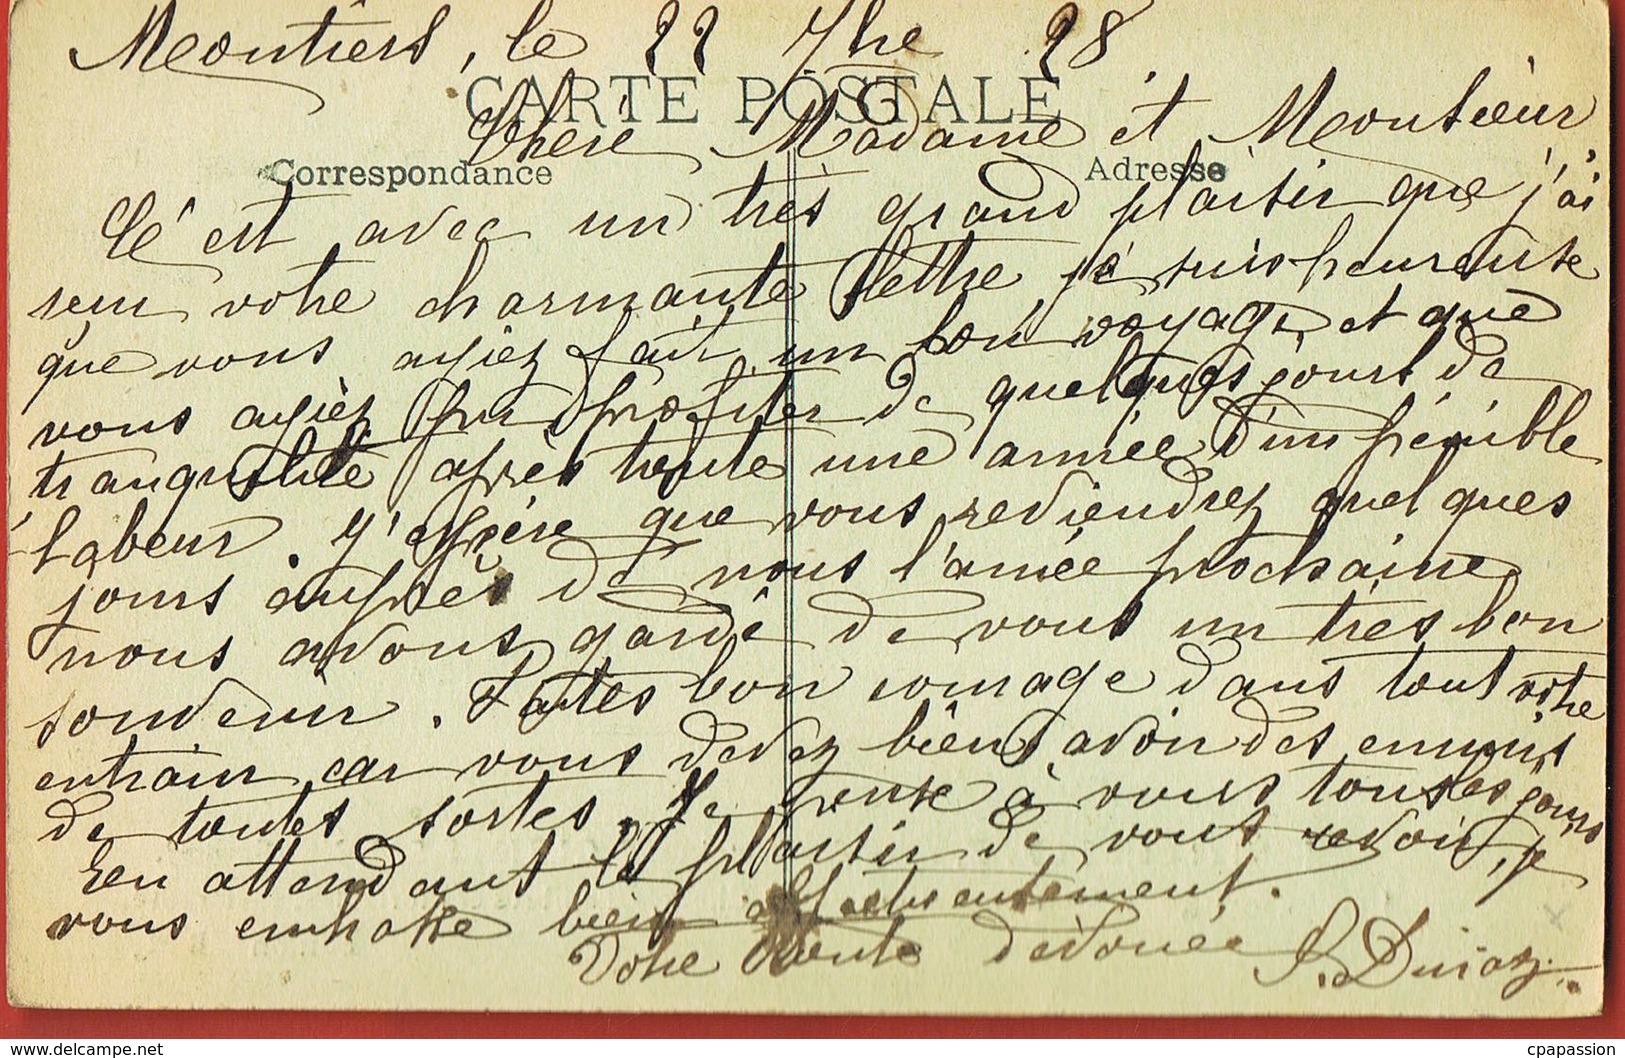 Moutiers, le 22 7bre 28
CARTE POSTALE
Chère Madame et Monsieur
Correspondance
Adresse
C'est avec un très grand plaisir que j'ai
reçu votre charmante lettre je suis heureuse
que vous ayiez fait un bon voyage et que
vous ayiez pu profiter de quelques jours de
tranquilité après toute une année d'un pénible
labeur. J'espère que vous reviendrez quelques
jours auprès de nous l'année prochaine
nous avons gardé de vous un très bon
souvenir. Faites bon courage dans tout votre
entrain car vous devez bien avoir des ennuis
de toutes sortes. Je pense à vous tous les jours
En attendant le plaisir de vous revoir, je
vous embrasse bien affectueusement.
Votre dévouée S. Duraz
delcampe.net
cpapassion